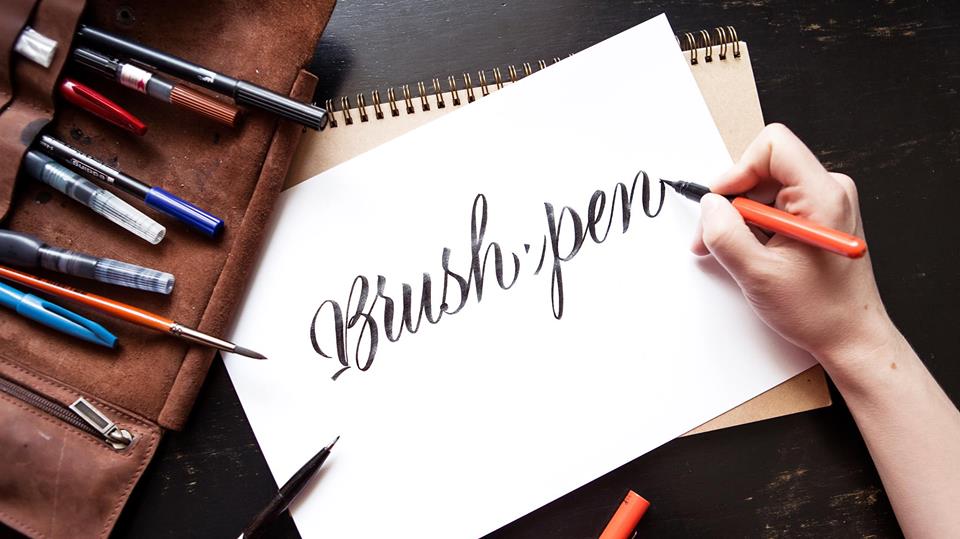 Brush·pen